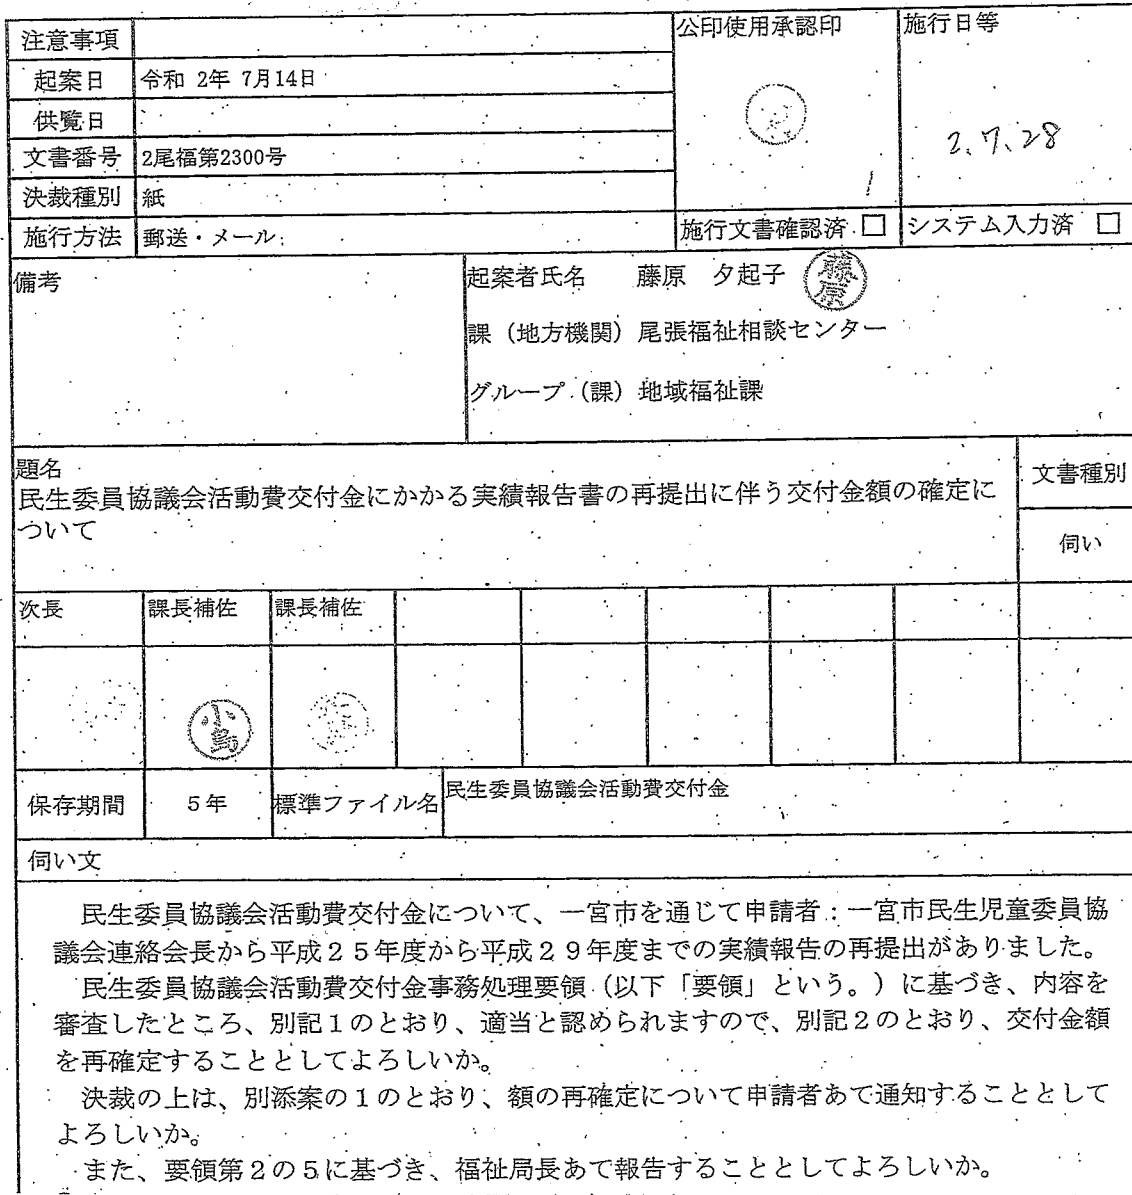 注意事項
公印使用承認印
施行日等
起案日 令和 2年 7月14日
供覧日
2.7.28
文書番号 2尾福第2300号
決裁種別 紙
施行方法 郵送・メール
施行文書確認済 □
システム入力済 □
備考
起案者氏名 藤原 夕起子 藤原
課(地方機関)尾張福祉相談センター
グループ(課)地域福祉課
題名
民生委員協議会活動費交付金にかかる実績報告書の再提出に伴う交付金額の確定に
ついて
文書種別
伺い
次長 課長補佐 課長補佐
小島
保存期間 5年 標準ファイル名 民生委員協議会活動費交付金
伺い文
民生委員協議会活動費交付金について、一宮市を通じて申請者:一宮市民生児童委員協
議会連絡会長から平成25年度から平成29年度までの実績報告の再提出がありました。
民生委員協議会活動費交付金事務処理要領(以下「要領」という。)に基づき、内容を
審査したところ、別記1のとおり、適当と認められますので、別記2のとおり、交付金額
を再確定することとしてよろしいか。
決裁の上は、別添案の1のとおり、額の再確定について申請者あて通知することとして
よろしいか。
また、要領第2の5に基づき、福祉局長あて報告することとしてよろしいか。